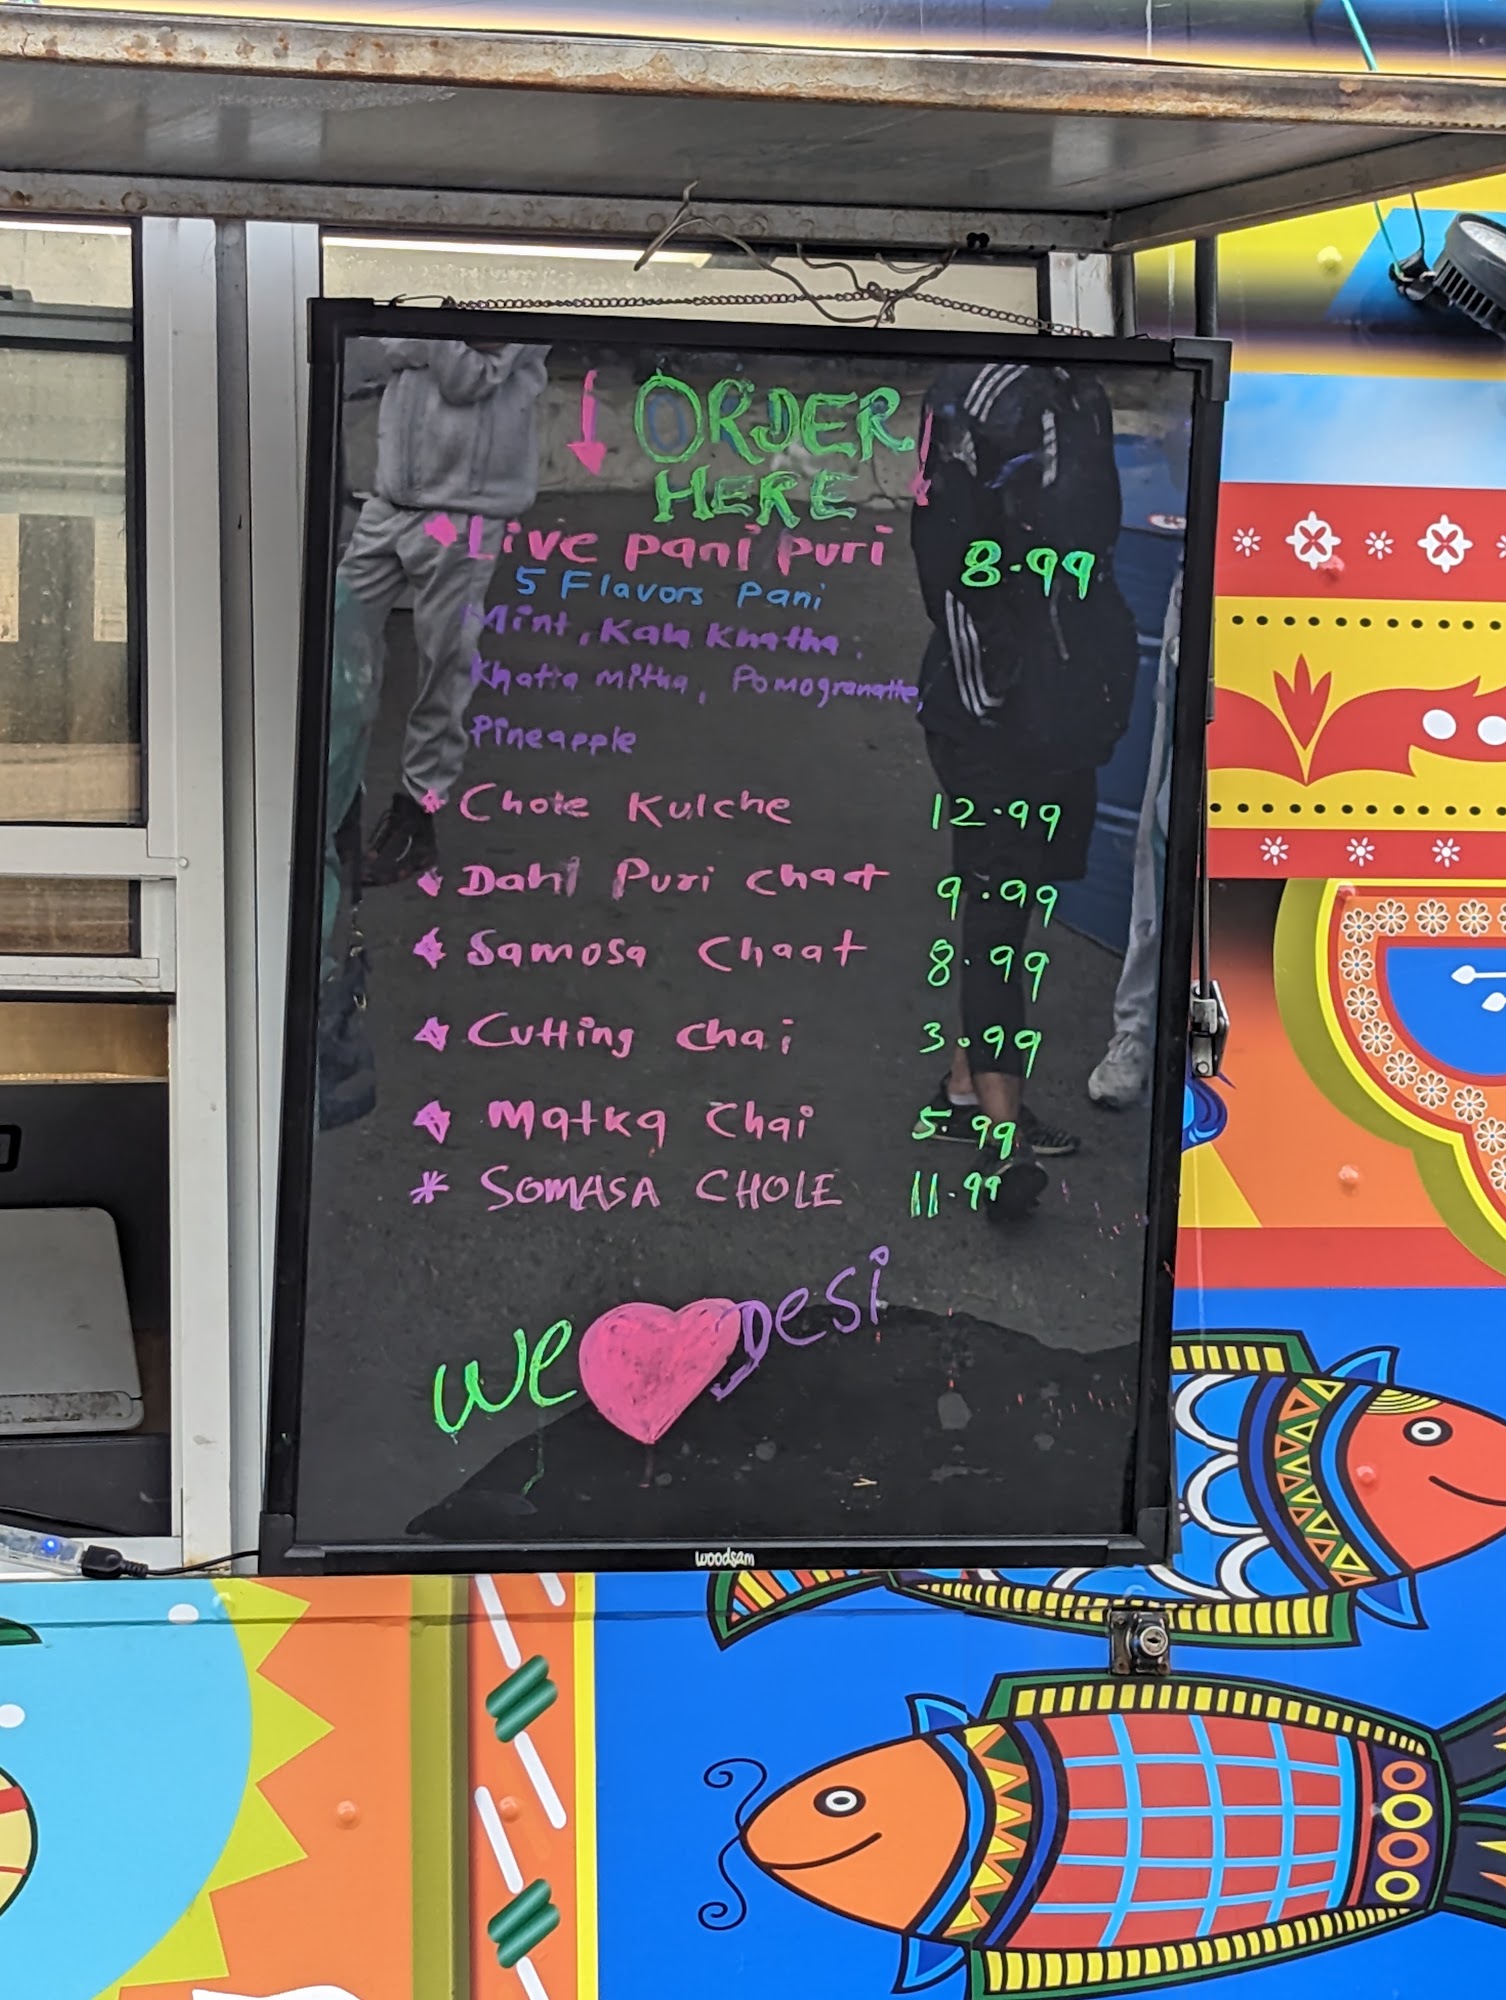 ORDER
HERE
Live pani puri 8.99
5 Flavors Pani
Mint, Kala Khatha,
Khatta mitha, Pomogranatte,
Pineapple
Chole Kulche 12.99
Dahi Puri Chaat 9.99
Samosa Chaat 8.99
Cutting Chai 3.99
Matka Chai 5.99
* SOMASA CHOLE 11.99
we Desi
woodsam